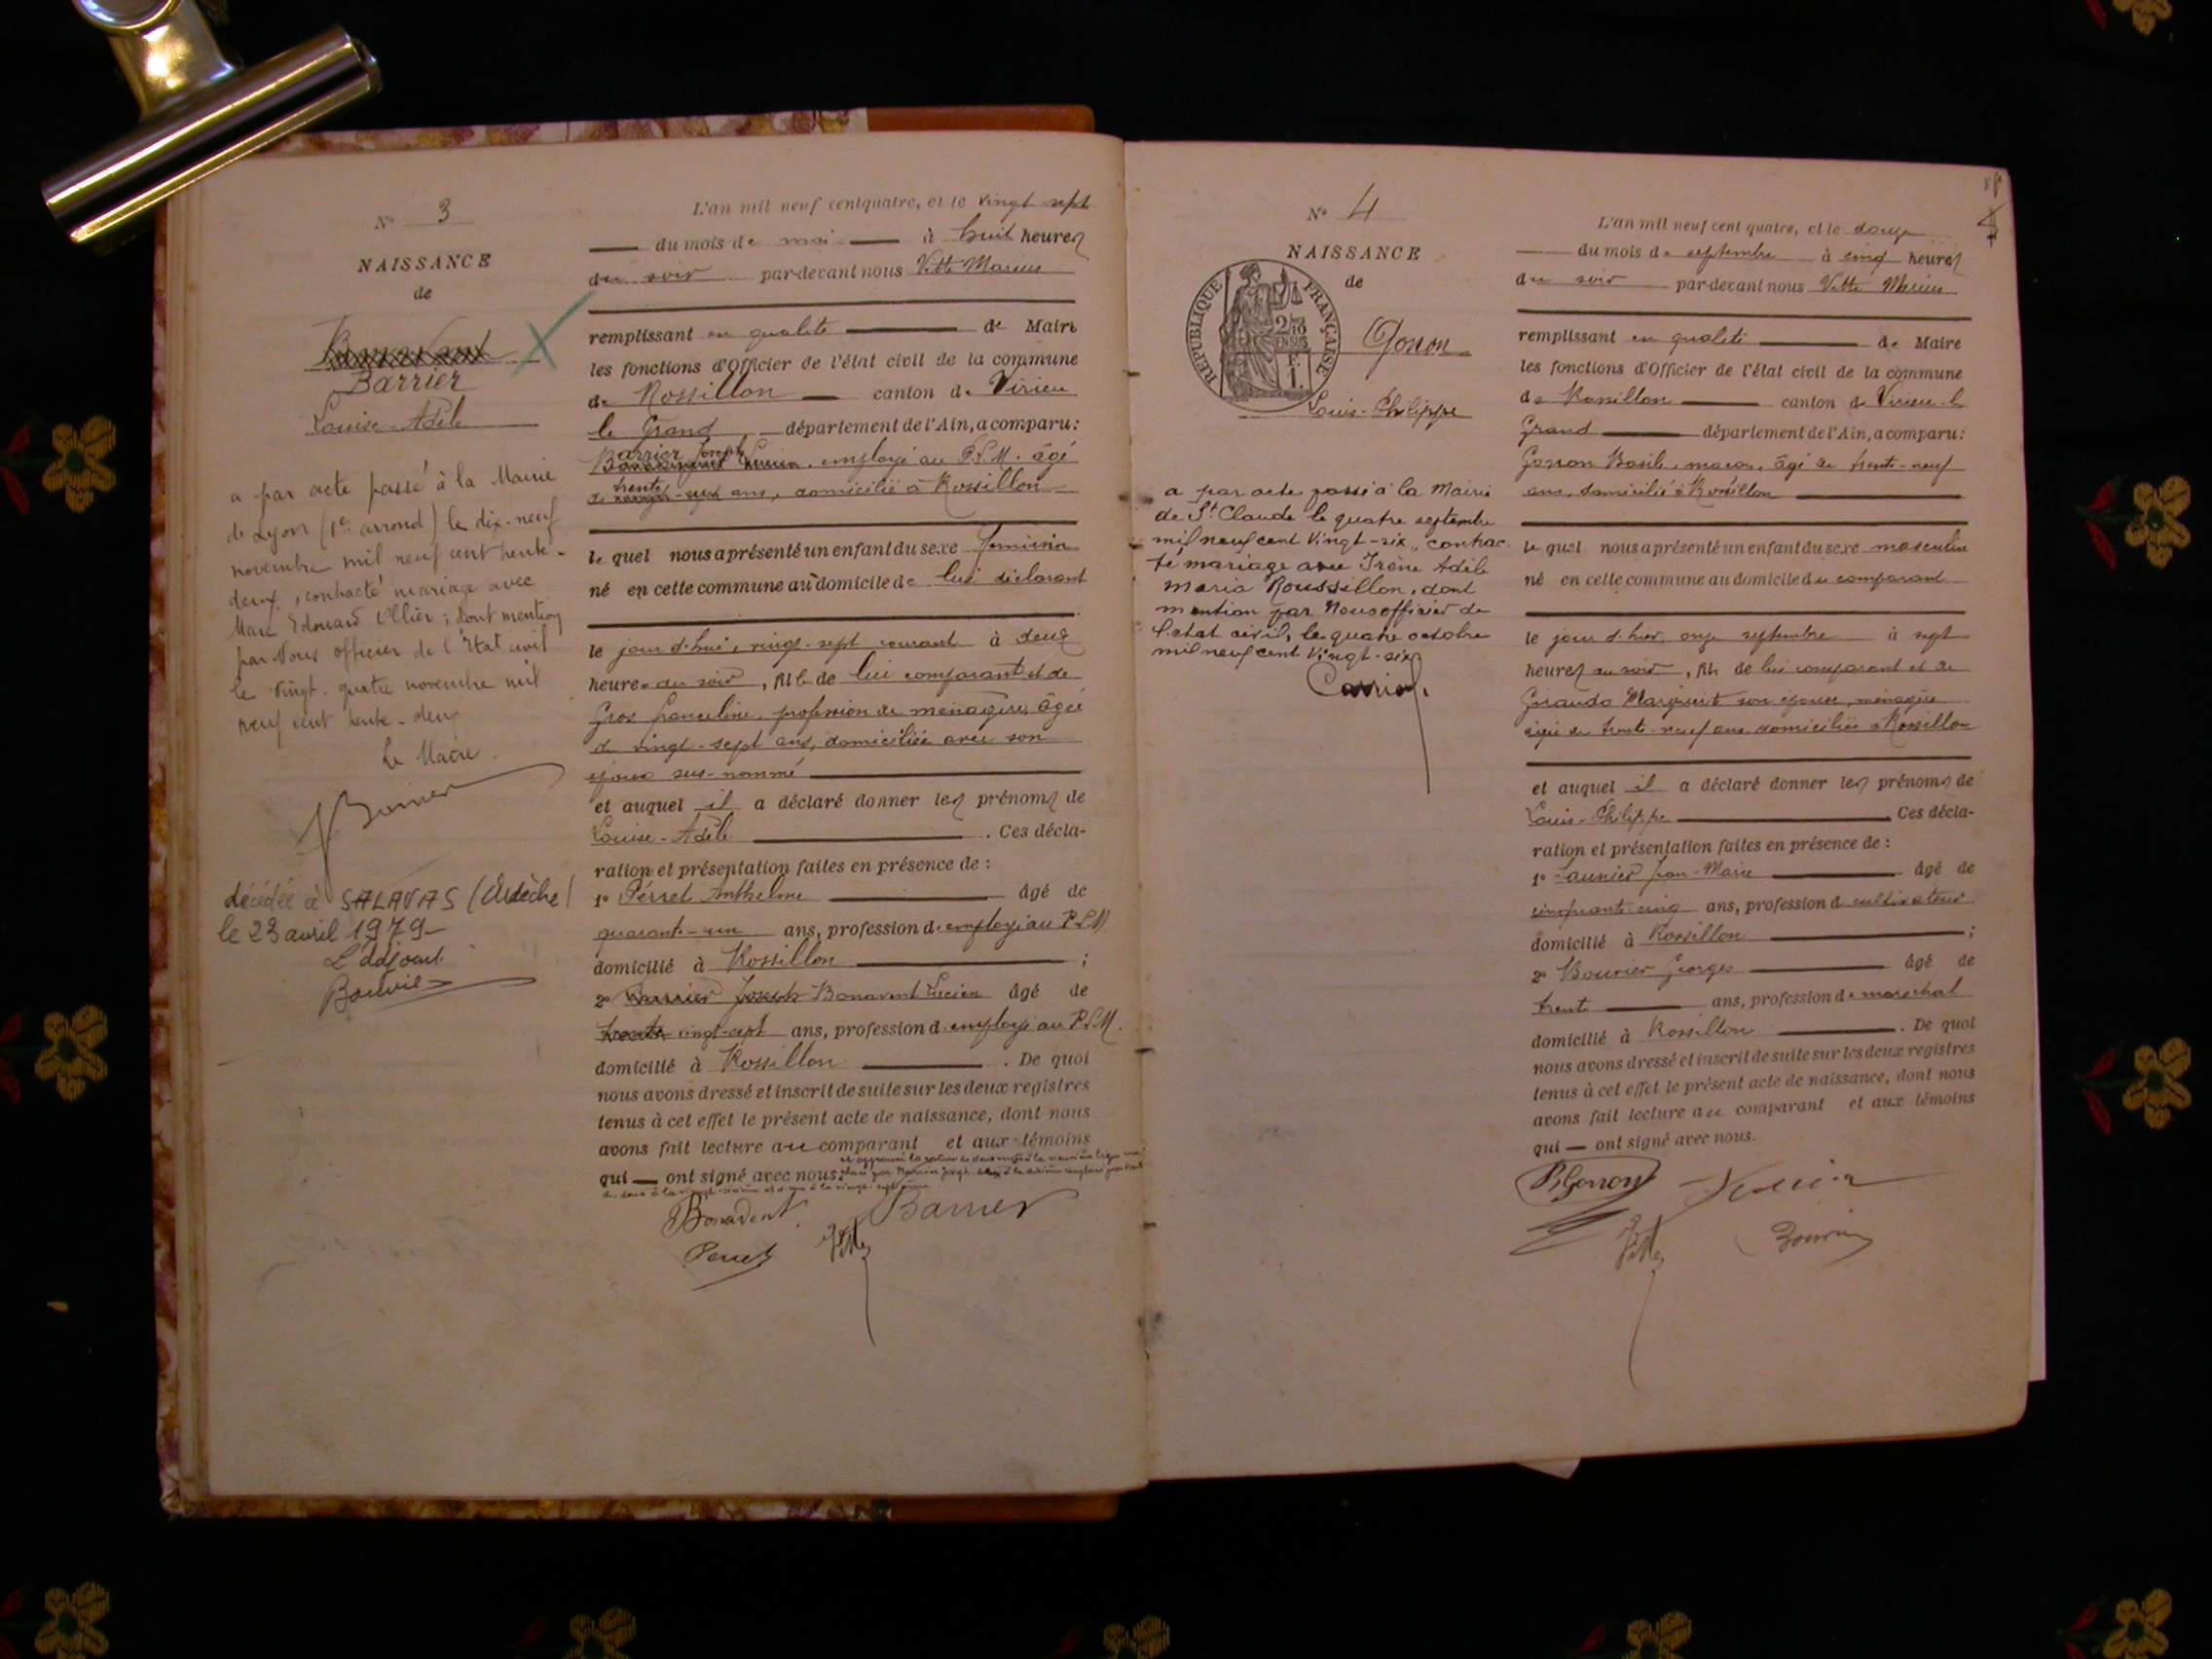 N° 3
NAISSANCE
de
Barrier
Louise-Adèle
a par acte passé à la Mairie
de Lyon (1er arrond) le dix-neuf
novembre mil neuf cent trente-
deux, contracté mariage avec
Marc Edouard Ollier; dont mention
par Nous officier de l'Etat civil
le vingt-quatre novembre mil
neuf cent trente-deux
Le Maire.
décédée à SALAVAS (Ardèche)
le 23 avril 1979-
L'adjoint
L'an mil neuf cent quatre, et le vingt-sept
du mois de mai à huit heures
du soir par-devant nous Vette Marius
remplissant en qualité de Maire
les fonctions d'Officier de l'état civil de la commune
de Rossillon canton de Virieu
le Grand département de l'Ain, a comparu:
Barrier Joseph employé au P.L.M. âgé
de trente ans, domicilié à Rossillon
le quel nous a présenté un enfant du sexe féminin
né en cette commune au domicile de lui déclarant
le jour d'hui, vingt-sept courant à deux
heures du soir, fille de lui comparant et de
Gros Franceline, profession de ménagère, âgée
de vingt-sept ans, domiciliée avec son
époux sus-nommé
et auquel il a déclaré donner les prénoms de
Louise-Adèle. Ces décla-
ration et présentation faites en présence de:
1° Perret Anthelme âgé de
quarante-un ans, profession d'employé au P.L.M
domicilié à Rossillon;
2° Barrier Joseph Bonavent Lucien âgé de
trente vingt-sept ans, profession d'employé au P.L.M.
domicilié à Rossillon. De quoi
nous avons dressé et inscrit de suite sur les deux registres
tenus à cet effet le présent acte de naissance, dont nous
avons fait lecture au comparant et aux témoins
qui — ont signé avec nous.
Bonavent Barrier
Perret Vette
N° 4
NAISSANCE
de
REPUBLIQUE FRANÇAISE
Gonon
Louis-Philippe
a par acte passé à la Mairie
de St Claude le quatre septembre
mil neuf cent vingt-six, contrac-
té mariage avec Irène Adèle
Maria Roussillon, dont
mention par Nous officier de
l'état civil, le quatre octobre
mil neuf cent vingt-six
L'an mil neuf cent quatre, et le douze
du mois de septembre à cinq heures
du soir par-devant nous Vette Marius
remplissant en qualité de Maire
les fonctions d'Officier de l'état civil de la commune
de Rossillon canton de Virieu-le
Grand département de l'Ain, a comparu:
Gonon Basile, maçon, âgé de trente-neuf
ans, domicilié à Rossillon
le quel nous a présenté un enfant du sexe masculin
né en cette commune au domicile du comparant
le jour d'hier, onze septembre à sept
heures du soir, fils de lui comparant et de
Giraudo Marguerite son épouse, ménagère
âgée de trente-neuf ans domiciliée à Rossillon
et auquel il a déclaré donner les prénoms de
Louis-Philippe. Ces décla-
ration et présentation faites en présence de:
1° Jean-Marie âgé de
cinquante-cinq ans, profession de cultivateur
domicilié à Rossillon;
2° Bouvier Georges âgé de
trente ans, profession de maréchal
domicilié à Rossillon. De quoi
nous avons dressé et inscrit de suite sur les deux registres
tenus à cet effet le présent acte de naissance, dont nous
avons fait lecture au comparant et aux témoins
qui — ont signé avec nous.
B. Gonon
Vette Bouvier